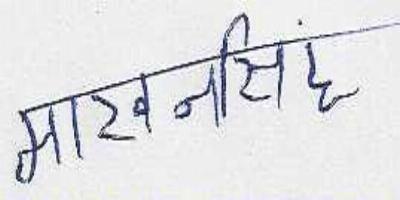 माखनसिंह